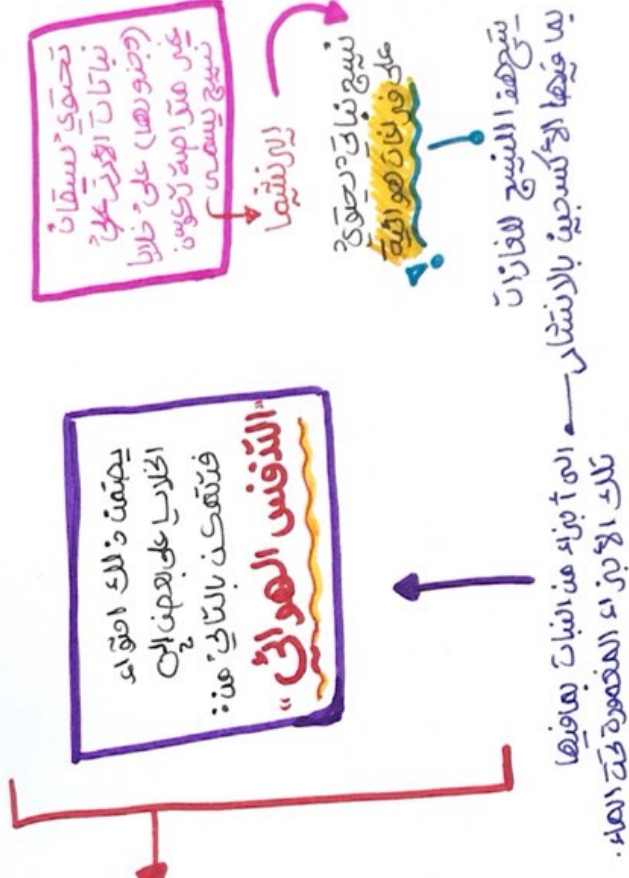 تحتوي سيقان
نباتات الأرز على
(وجذورها) على خلايا
غير متراصة تكون
نسيج يسمى
ايرنشيما
نسيج نباتي يحتوي
على فراغات هوائية
يتيح هذا النسيج للغازات
بما فيها الأكسجين بالانتشار
الى أجزاء من النبات بما فيها
تلك الأجزاء المغمورة تحت الماء.
يضمن ذلك احتواء
الخلايا على بعض
فتتمكن بالتالي من:
"التنفس الهوائي"